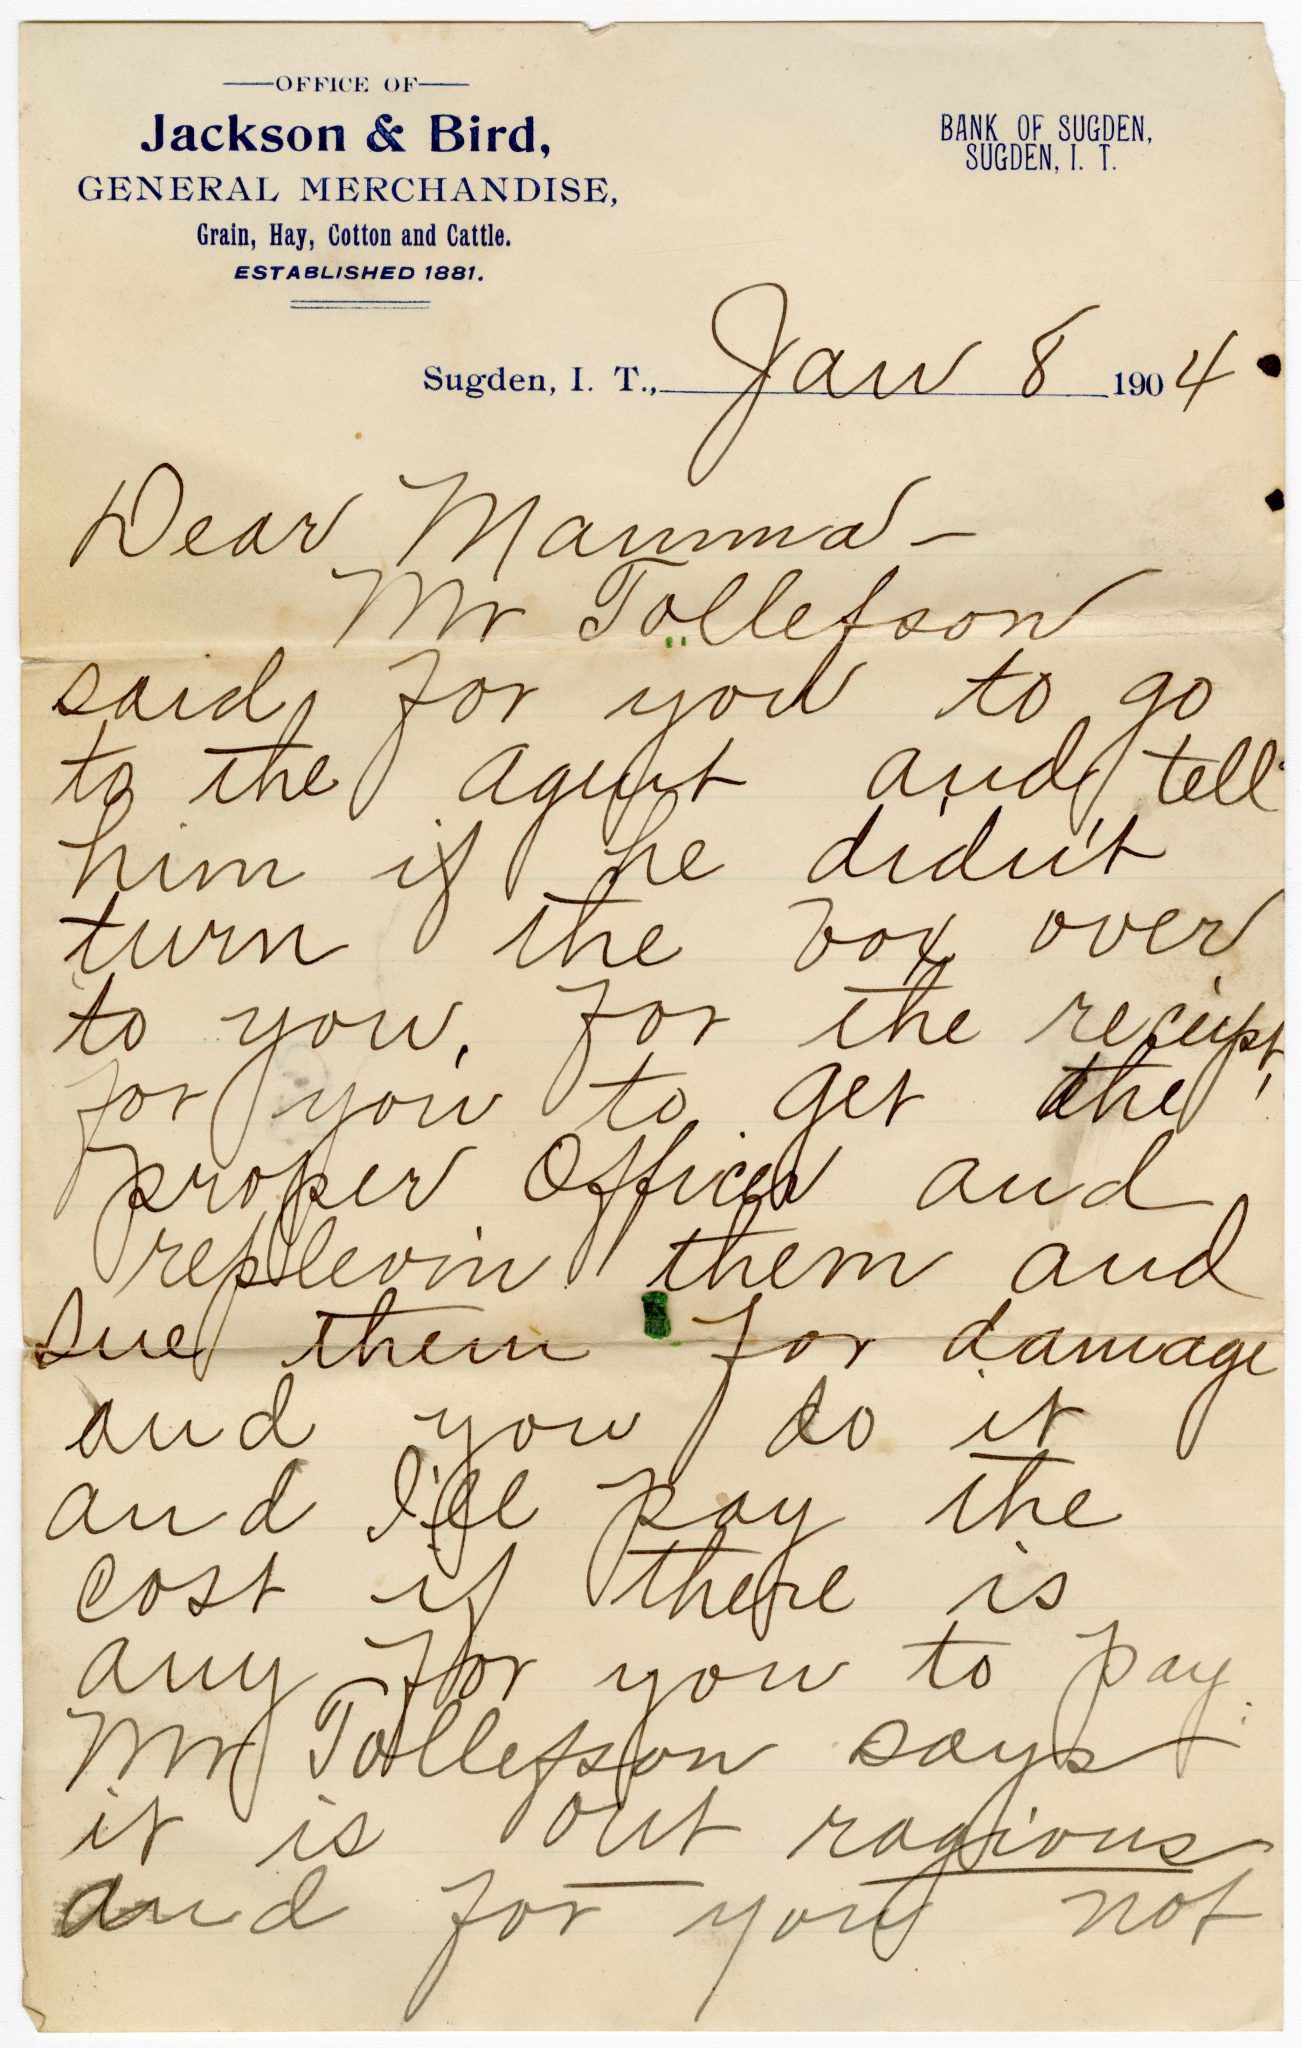 OFFICE OF
Jackson & Bird,
GENERAL MERCHANDISE,
Grain, Hay, Cotton and Cattle.
ESTABLISHED 1881.
BANK OF SUGDEN,
SUGDEN, I. T.
Sugden, I. T., Jan 8 1904
Dear Mamma -
Mr Tollefson
said for you to go
to the agent and tell
him if he didn't
turn the box over
to you, for the reciept,
for you to get the
proper Officer and
replevin them and
sue them for damage
and you do it
and I'll pay the
cost if there is
any for you to pay.
Mr Tollefson says
it is out ragious
and for you not